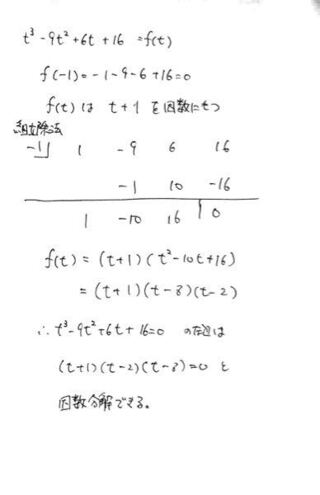 t³ - 9t² + 6t + 16 = f(t)
f(-1) = -1 - 9 - 6 + 16 = 0
f(t) は t+1 を因数にもつ
組立除法
-1 1 -9 6 16
-1 10 -16
1 -10 16 0
f(t) = (t+1)(t² - 10t + 16)
= (t+1)(t-8)(t-2)
∴ t³ - 9t² + 6t + 16 = 0 の左辺は
(t+1)(t-2)(t-8) = 0 と
因数分解できる。